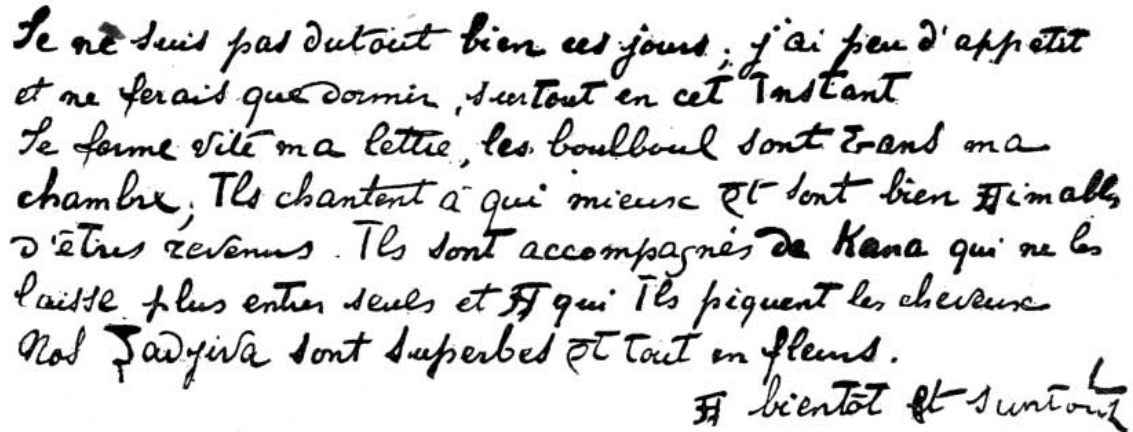 Je ne suis pas dutout bien ces jours, j'ai peu d'appetit
et ne ferais que dormir, surtout en cet Instant
Je ferme vite ma lettre, les boulboul sont dans ma
chambre; Ils chantent à qui mieux et sont bien Aimables
d'êtres revenus. Ils sont accompagnés de Kana qui ne les
laisse plus entrer seuls et A qui Ils piquent les cheveux
Nos Zadyiva sont superbes et tout en fleurs.
A bientôt et surtout